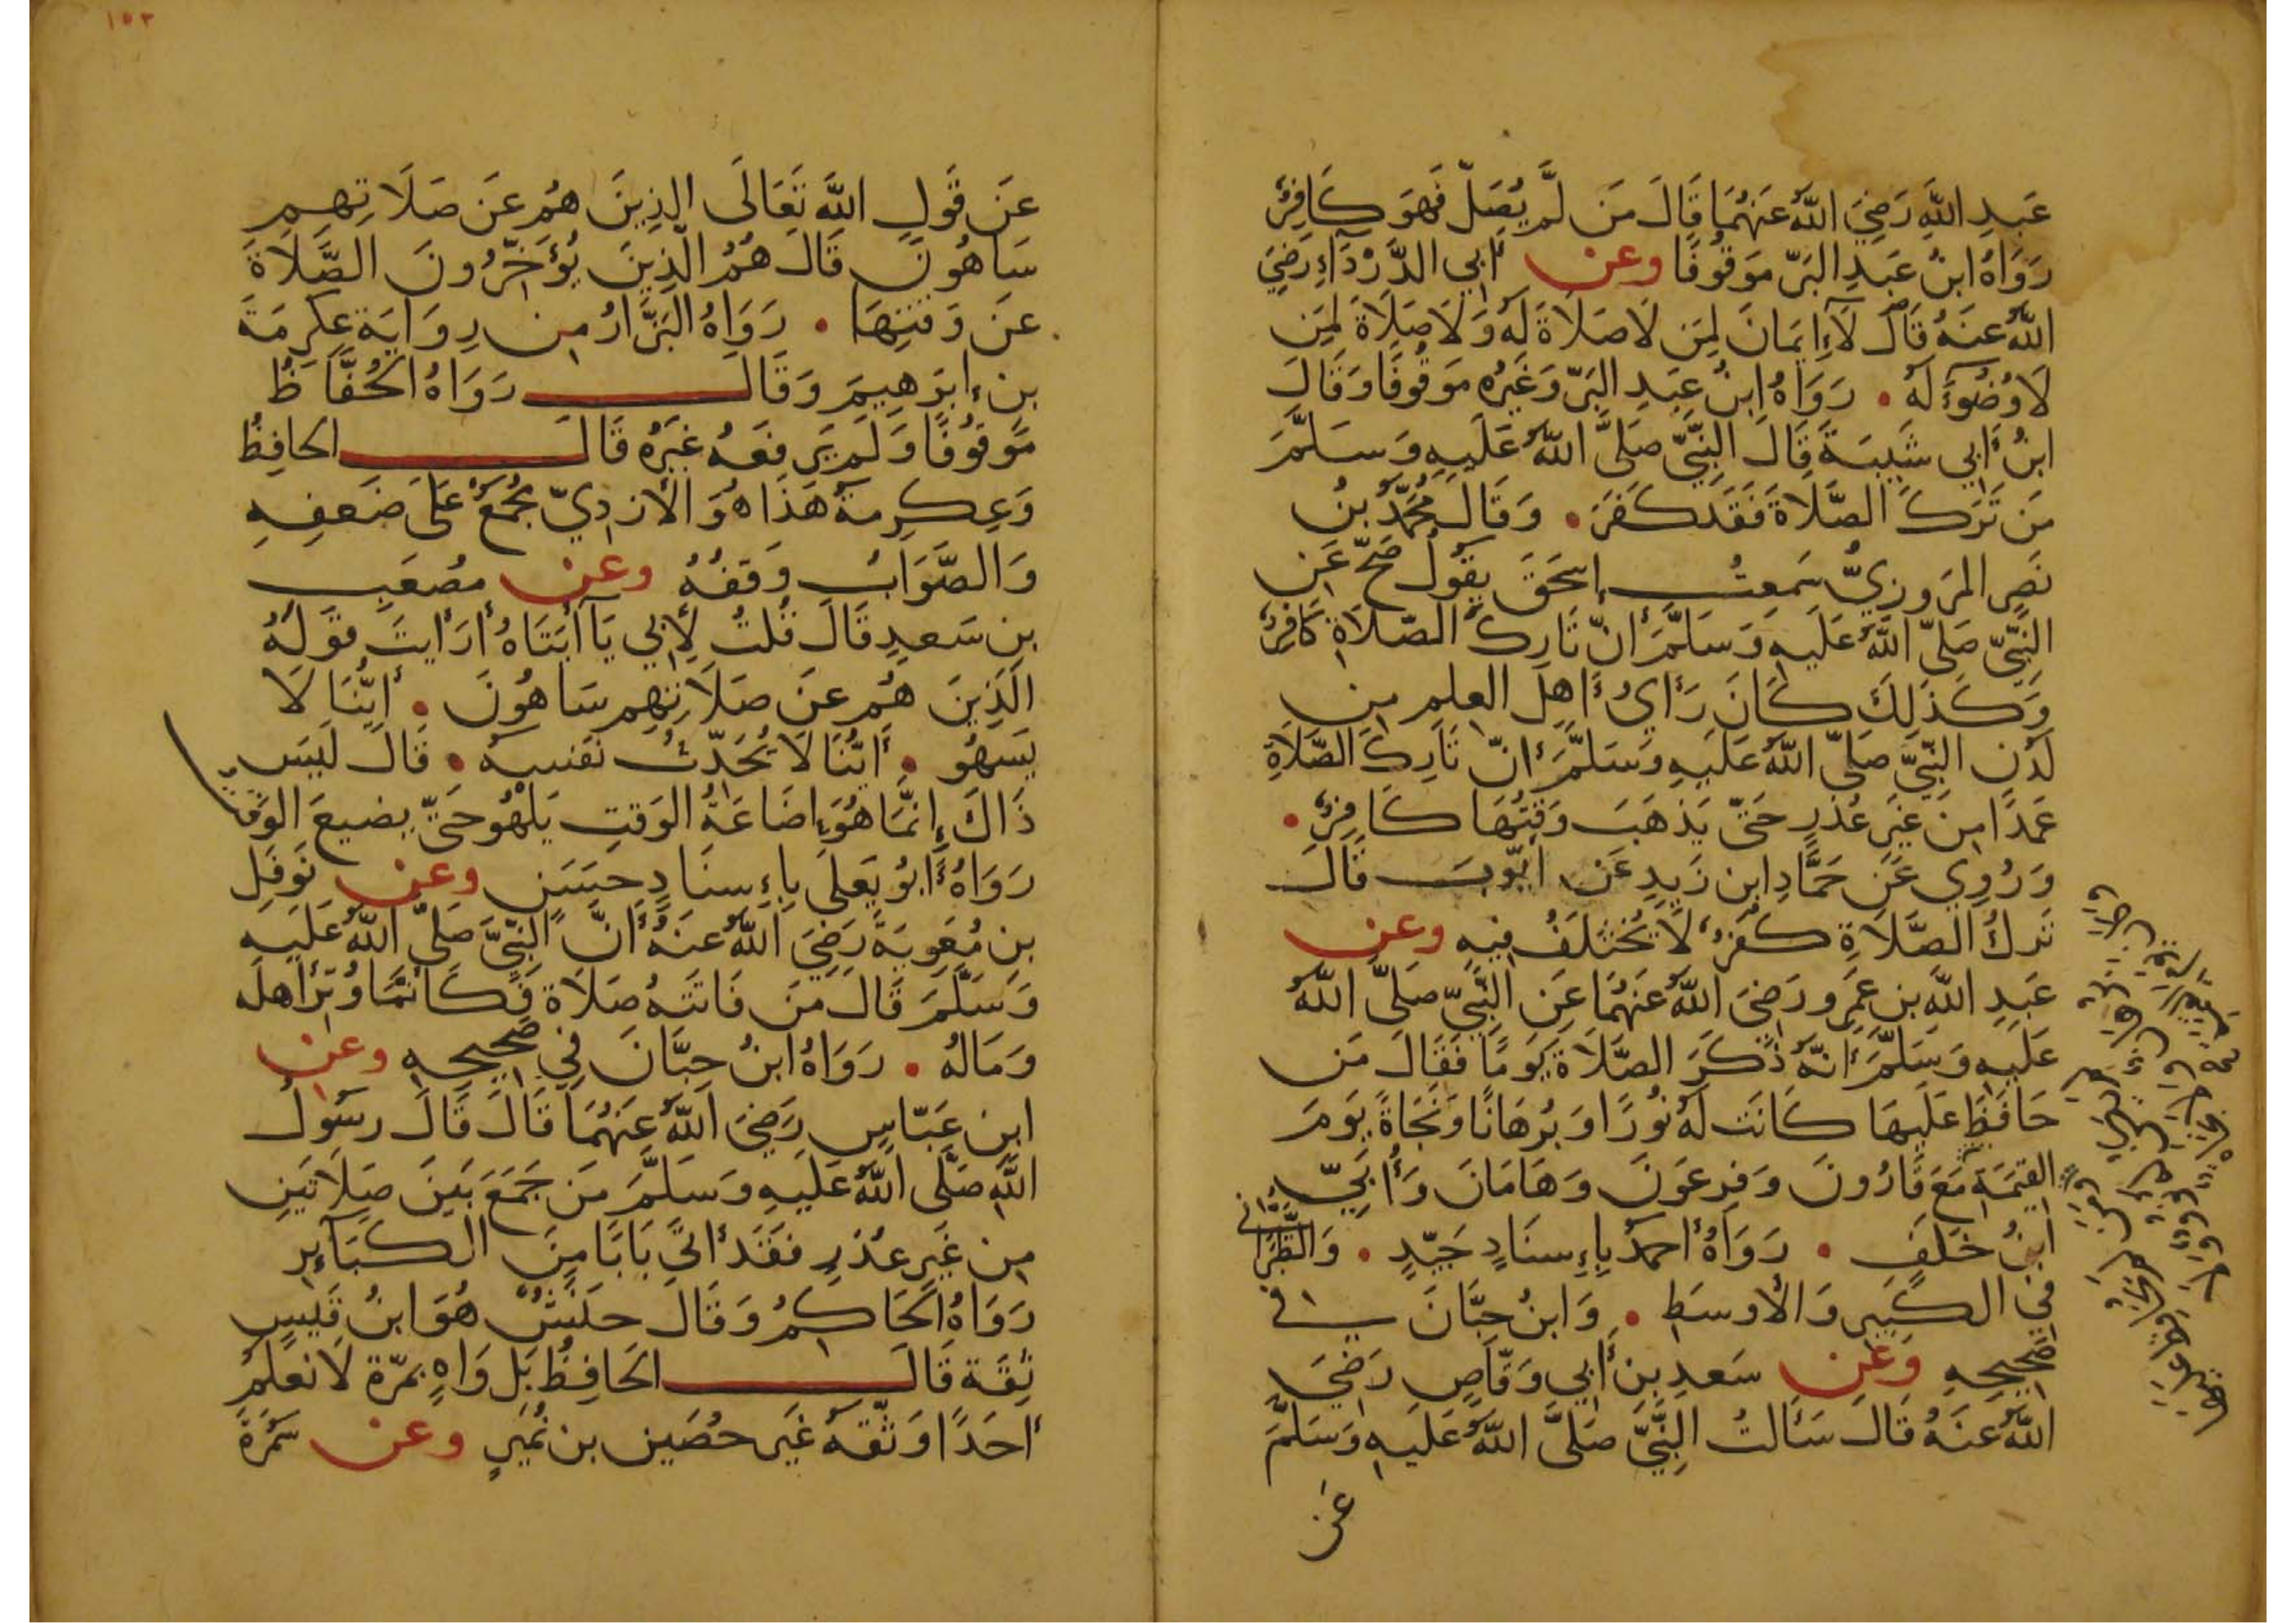 عَبدِ اللَّهِ رَضِيَ اللَّهُ عَنهُمَا قَالَ مَن لَّم يُصَلِّ فَهوَ كَافِرٌ
رَوَاهُ ابنُ عَبدِ البَرِّ مَوقُوفًا وعن أبي الدَّرْدَاءِ رَضِيَ
اللَّهُ عنهُ قَالَ لَا إِيمَانَ لِمَن لَا صَلَاةَ لَهُ وَلَا صَلَاةَ لِمَن
لَا وُضُوءَ لَهُ . رَوَاهُ ابنُ عَبدِ البَرِّ وَغَيرُه مَوقُوفًا وَقَالَ
ابنُ أبي شَيبَةَ قَالَ النَّبيُّ صَلَّى اللَّهُ عَلَيهِ وَسَلَّمَ
مَن تَرَكَ الصَّلَاةَ فَقَد كَفَرَ . وَقَالَ مُحَمَّدُ بنُ
نَصرٍ المَروزِيُّ سَمِعتُ إِسحَقَ يَقُولُ صَحَّ عَنِ
النَّبيِّ صَلَّى اللَّهُ عَلَيهِ وَسَلَّمَ أنَّ تَارِكَ الصَّلَاةِ كَافِرٌ
وَكَذَلِكَ كَانَ رَأيُ أَهلِ العِلمِ مِن
لَدُنِ النَّبيِّ صَلَّى اللَّهُ عَلَيهِ وَسَلَّمَ أنَّ تَارِكَ الصَّلَاةِ
عَمدًا مِن غَيرِ عُذرٍ حَتَّى يَذهَبَ وَقتُهَا كَافِرٌ .
وَرُوِي عَن حَمَّادِ ابن زَيدٍ عَن أيّوبَ قَالَ
تَركُ الصَّلَاةِ كُفرٌ لَا يُختَلَفُ فِيهِ وعن
عَبدِ اللَّهِ بنِ عَمرٍو رَضِيَ اللَّهُ عَنهُمَا عَنِ النَّبيِّ صَلَّى اللَّهُ
عَلَيهِ وَسَلَّمَ أنَّهُ ذَكَرَ الصَّلَاةَ يَومًا فَقَالَ مَن
حَافَظَ عَلَيهَا كَانَت لَهُ نُورًا وَبُرهَانًا وَنَجَاةً يَومَ
القِيَمَةِ مَعَ قَارُونَ وَفِرعَونَ وَهَامَانَ وَأُبَيِّ
ابنُ خَلَفٍ . رَوَاهُ أحمَدُ بِإِسنَادٍ جَيِّدٍ . وَالطَّبَرَاني
في الكَبِيرِ وَالأوسَطِ . وَابنُ حِبَّانَ في
صَحِيحِهِ وَعَن سَعدِ بنِ أبي وَقَّاصٍ رَضِيَ
اللَّهُ عَنهُ قَالَ سَأَلتُ النَّبيَّ صَلَّى اللَّهُ عَلَيهِ وَسَلَّمَ
عَن
١٥٣
عَن قَولِ اللَّهِ تَعَالَى الذِينَ هُم عَن صَلَاتِهِم
سَاهُونَ قَالَ هُمُ الَّذِينَ يُؤَخِّرُونَ الصَّلَاةَ
عَن وَقتِهَا . رَوَاهُ البَزَّارُ مِن رِوَايَةِ عِكرِمَةَ
بنِ إبرَهِيمَ وَقَالَ رَوَاهُ الحُفَّاظُ
مَوقُوفًا وَلَم يَرفَعهُ غَيرُهُ قَالَ الحَافِظُ
وَعِكرِمَةُ هَذَا هُوَ الأزدِيُّ مُجمَعٌ عَلَى ضَعفِهِ
وَالصَّوَابُ وَقفُهُ وعن مُصعَبِ
بنِ سَعدٍ قَالَ قُلتُ لِأبي يَا أبَتَاهُ أرَأيتَ قَولَهُ
الَذِينَ هُم عَن صَلَاتِهِم سَاهُونَ . أيُّنَا لَا
يَسهُو . أيُّنَا لَا يُحَدِّثُ نَفسَهُ . قَالَ لَيسَ
ذَاكَ إِنَّمَا هُوَ إِضَاعَةُ الوَقتِ يَلهُو حَتَّى يضيعَ الوَقت
رَوَاهُ أبُو يَعلَى بِإِسنَادٍ حَسَنٍ وعن نَوفَلِ
بنِ مُعَوِيَةَ رَضِيَ اللَّهُ عَنهُ أنَّ النَّبيَّ صَلَّى اللَّهُ عَلَيهِ
وَسَلَّمَ قَالَ مَن فَاتَتهُ صَلَاة فَكَأنَّمَا وُتِرَ أهلَه
وَمَالَهُ . رَوَاهُ ابنُ حِبَّانَ فِي صَحِيحِهِ وعن
ابنِ عَبَّاسٍ رَضِيَ اللَّهُ عَنهُمَا قَالَ قَالَ رسُولُ
اللَّهِ صَلَّى اللَّهُ عَلَيهِ وَسَلَّمَ مَن جَمَعَ بَينَ صَلَاتَينِ
مِن غَيرِ عُذرٍ فَقَد أتَى بَابًا مِنَ الكَبَائِرِ
رَوَاهُ الحَاكِمُ وَقَالَ حَنَشٌ هُوَ ابنُ قَيسٍ
ثِقَة قَالَ الحَافِظُ بَل وَاهٍ بمَرّة لَا نَعلَمُ
أحَدًا وَثَّقَهُ غَيرَ حُصَينِ بنِ نُمَيرٍ وعن سَمُرَةَ